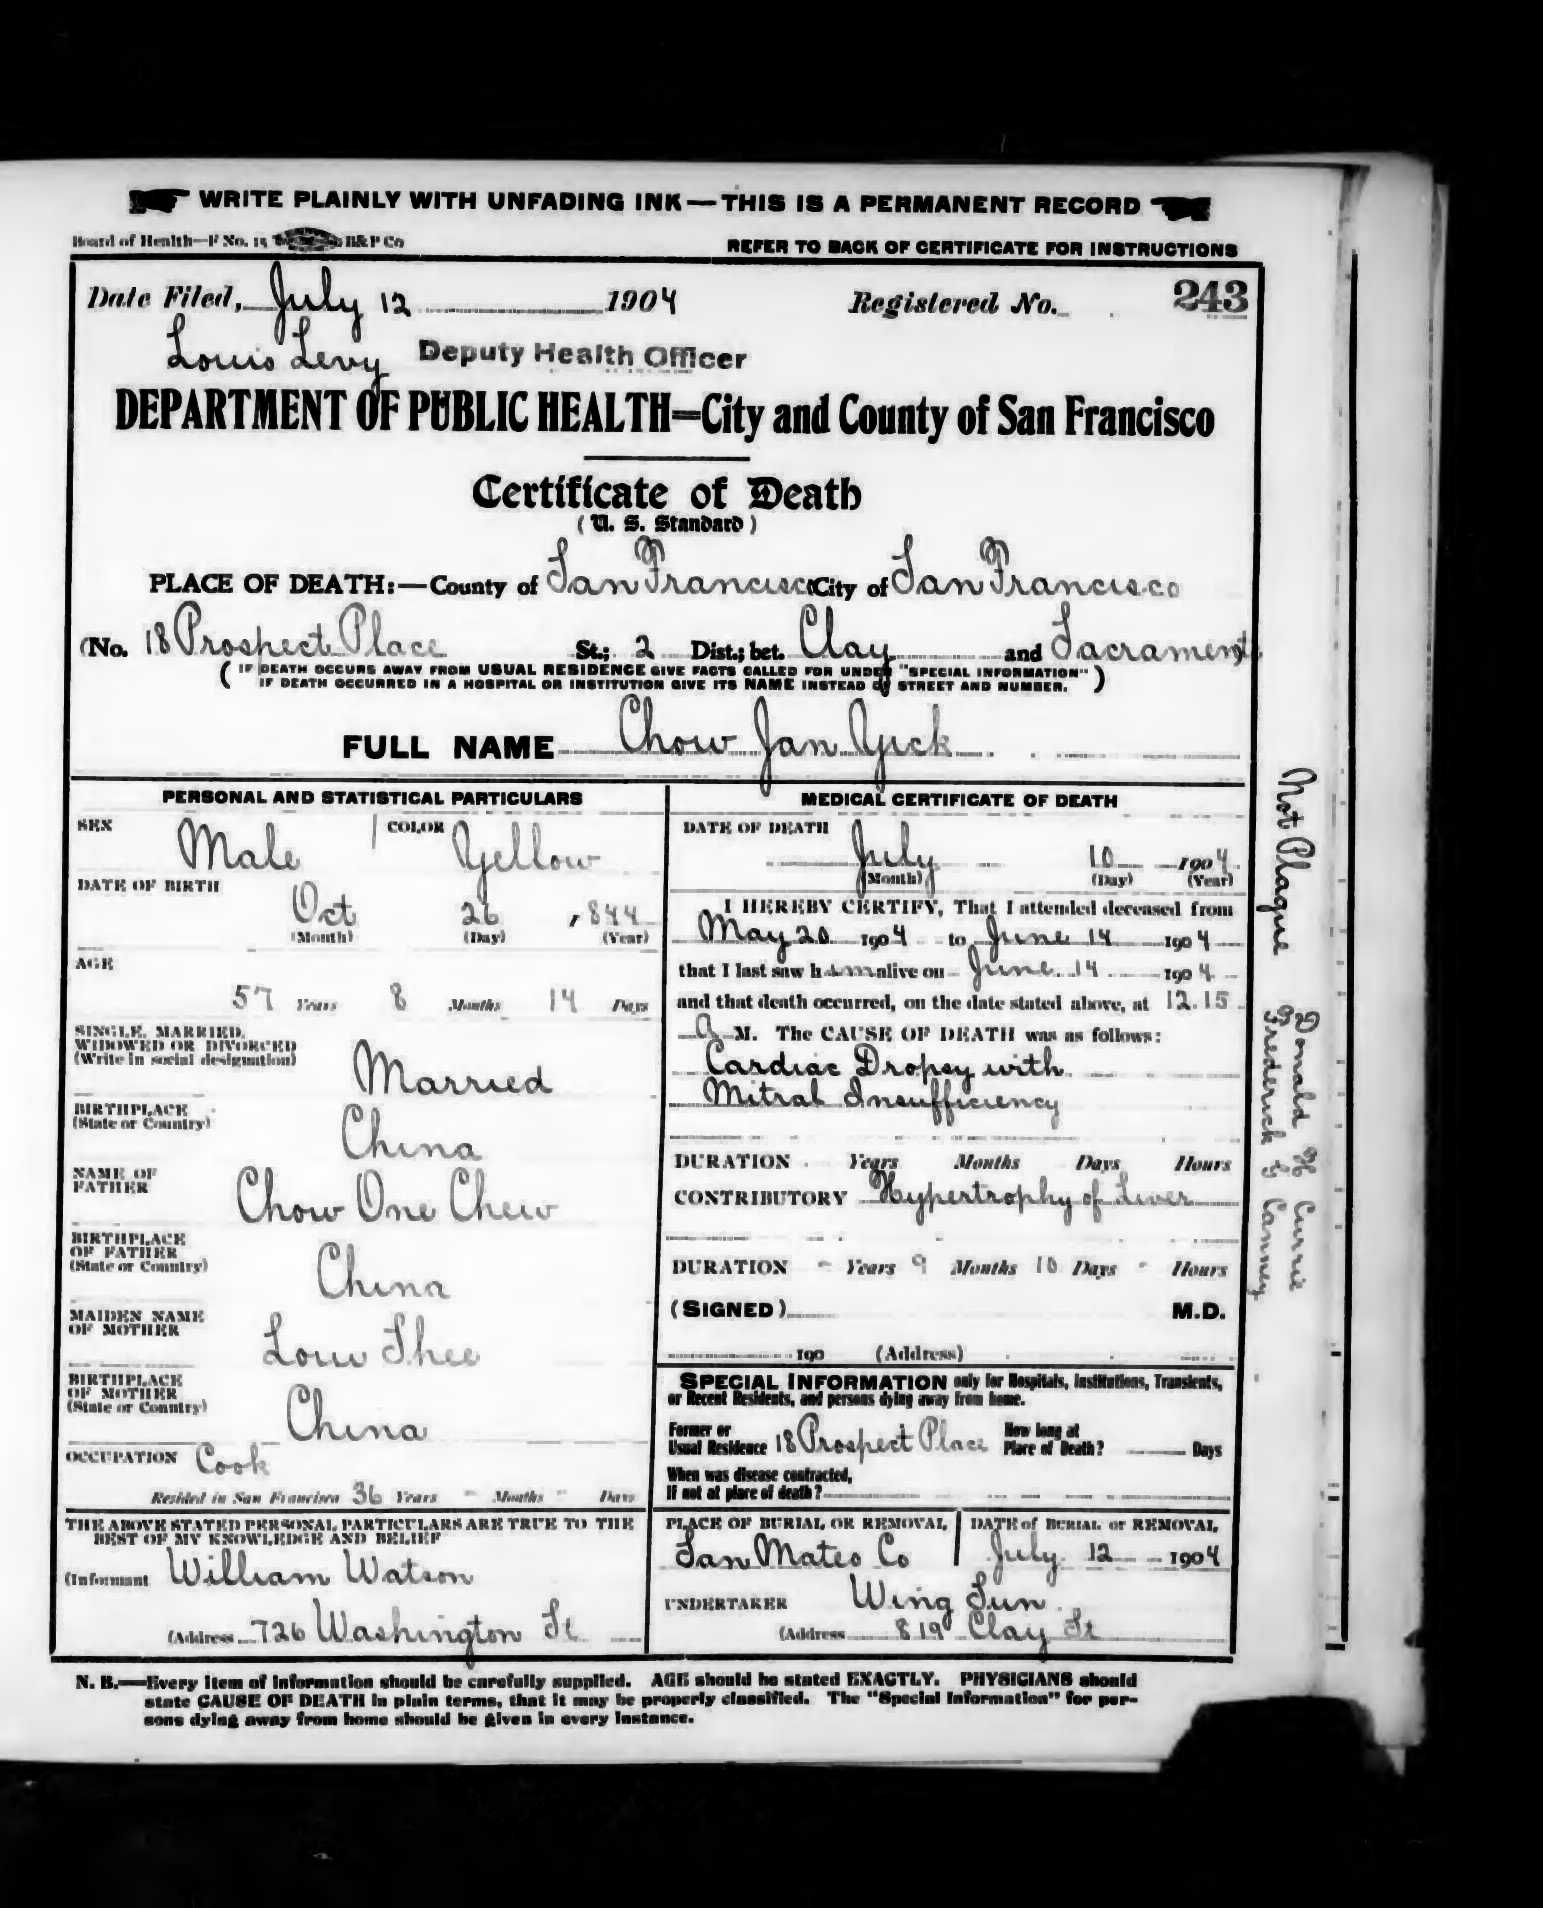 WRITE PLAINLY WITH UNFADING INK—THIS IS A PERMANENT RECORD
Board of Health—F No. 15 B&P Co
REFER TO BACK OF CERTIFICATE FOR INSTRUCTIONS
Date Filed, July 12 1904 Registered No. 243
Louis Levy Deputy Health Officer
DEPARTMENT OF PUBLIC HEALTH=City and County of San Francisco
Certificate of Death
(U. S. Standard)
PLACE OF DEATH:—County of San Francisco City of San Francisco
(No. 18 Prospect Place St.; 2 Dist.; bet. Clay and Sacramento
(IF DEATH OCCURS AWAY FROM USUAL RESIDENCE GIVE FACTS CALLED FOR UNDER "SPECIAL INFORMATION"
IF DEATH OCCURRED IN A HOSPITAL OR INSTITUTION GIVE ITS NAME INSTEAD OF STREET AND NUMBER.)
FULL NAME Chow Jan Yick
PERSONAL AND STATISTICAL PARTICULARS
SEX Male COLOR Yellow
DATE OF BIRTH
Oct 26 , 844
(Month) (Day) (Year)
AGE
57 Years 8 Months 14 Days
SINGLE, MARRIED,
WIDOWED OR DIVORCED
(Write in social designation)
Married
BIRTHPLACE
(State or Country)
China
NAME OF
FATHER
Chow One Chew
BIRTHPLACE
OF FATHER
(State or Country)
China
MAIDEN NAME
OF MOTHER
Low Shee
BIRTHPLACE
OF MOTHER
(State or Country)
China
OCCUPATION Cook
Resided in San Francisco 36 Years - Months - Days
THE ABOVE STATED PERSONAL PARTICULARS ARE TRUE TO THE
BEST OF MY KNOWLEDGE AND BELIEF
(Informant William Watson
(Address 726 Washington St
MEDICAL CERTIFICATE OF DEATH
DATE OF DEATH
July 10 1904
(Month) (Day) (Year)
I HEREBY CERTIFY, That I attended deceased from
May 20 1904 to June 14 1904
that I last saw him alive on June 14 1904
and that death occurred, on the date stated above, at 12.15
a M. The CAUSE OF DEATH was as follows:
Cardiac Dropsy with
Mitral Insufficiency
DURATION Years Months Days Hours
CONTRIBUTORY Hypertrophy of Liver
DURATION - Years 9 Months 10 Days - Hours
(SIGNED) M.D.
190 (Address)
SPECIAL INFORMATION only for Hospitals, Institutions, Transients,
or Recent Residents, and persons dying away from home.
Former or
Usual Residence 18 Prospect Place
How long at
Place of Death? Days
When was disease contracted,
If not at place of death?
PLACE OF BURIAL OR REMOVAL
San Mateo Co
DATE of BURIAL or REMOVAL
July 12 1904
UNDERTAKER Wing Sun
(Address 819 Clay St
Not Plague Donald H Currie
Frederick G Canney
N. B.—Every item of information should be carefully supplied. AGE should be stated EXACTLY. PHYSICIANS should
state CAUSE OF DEATH in plain terms, that it may be properly classified. The "Special Information" for per-
sons dying away from home should be given in every instance.